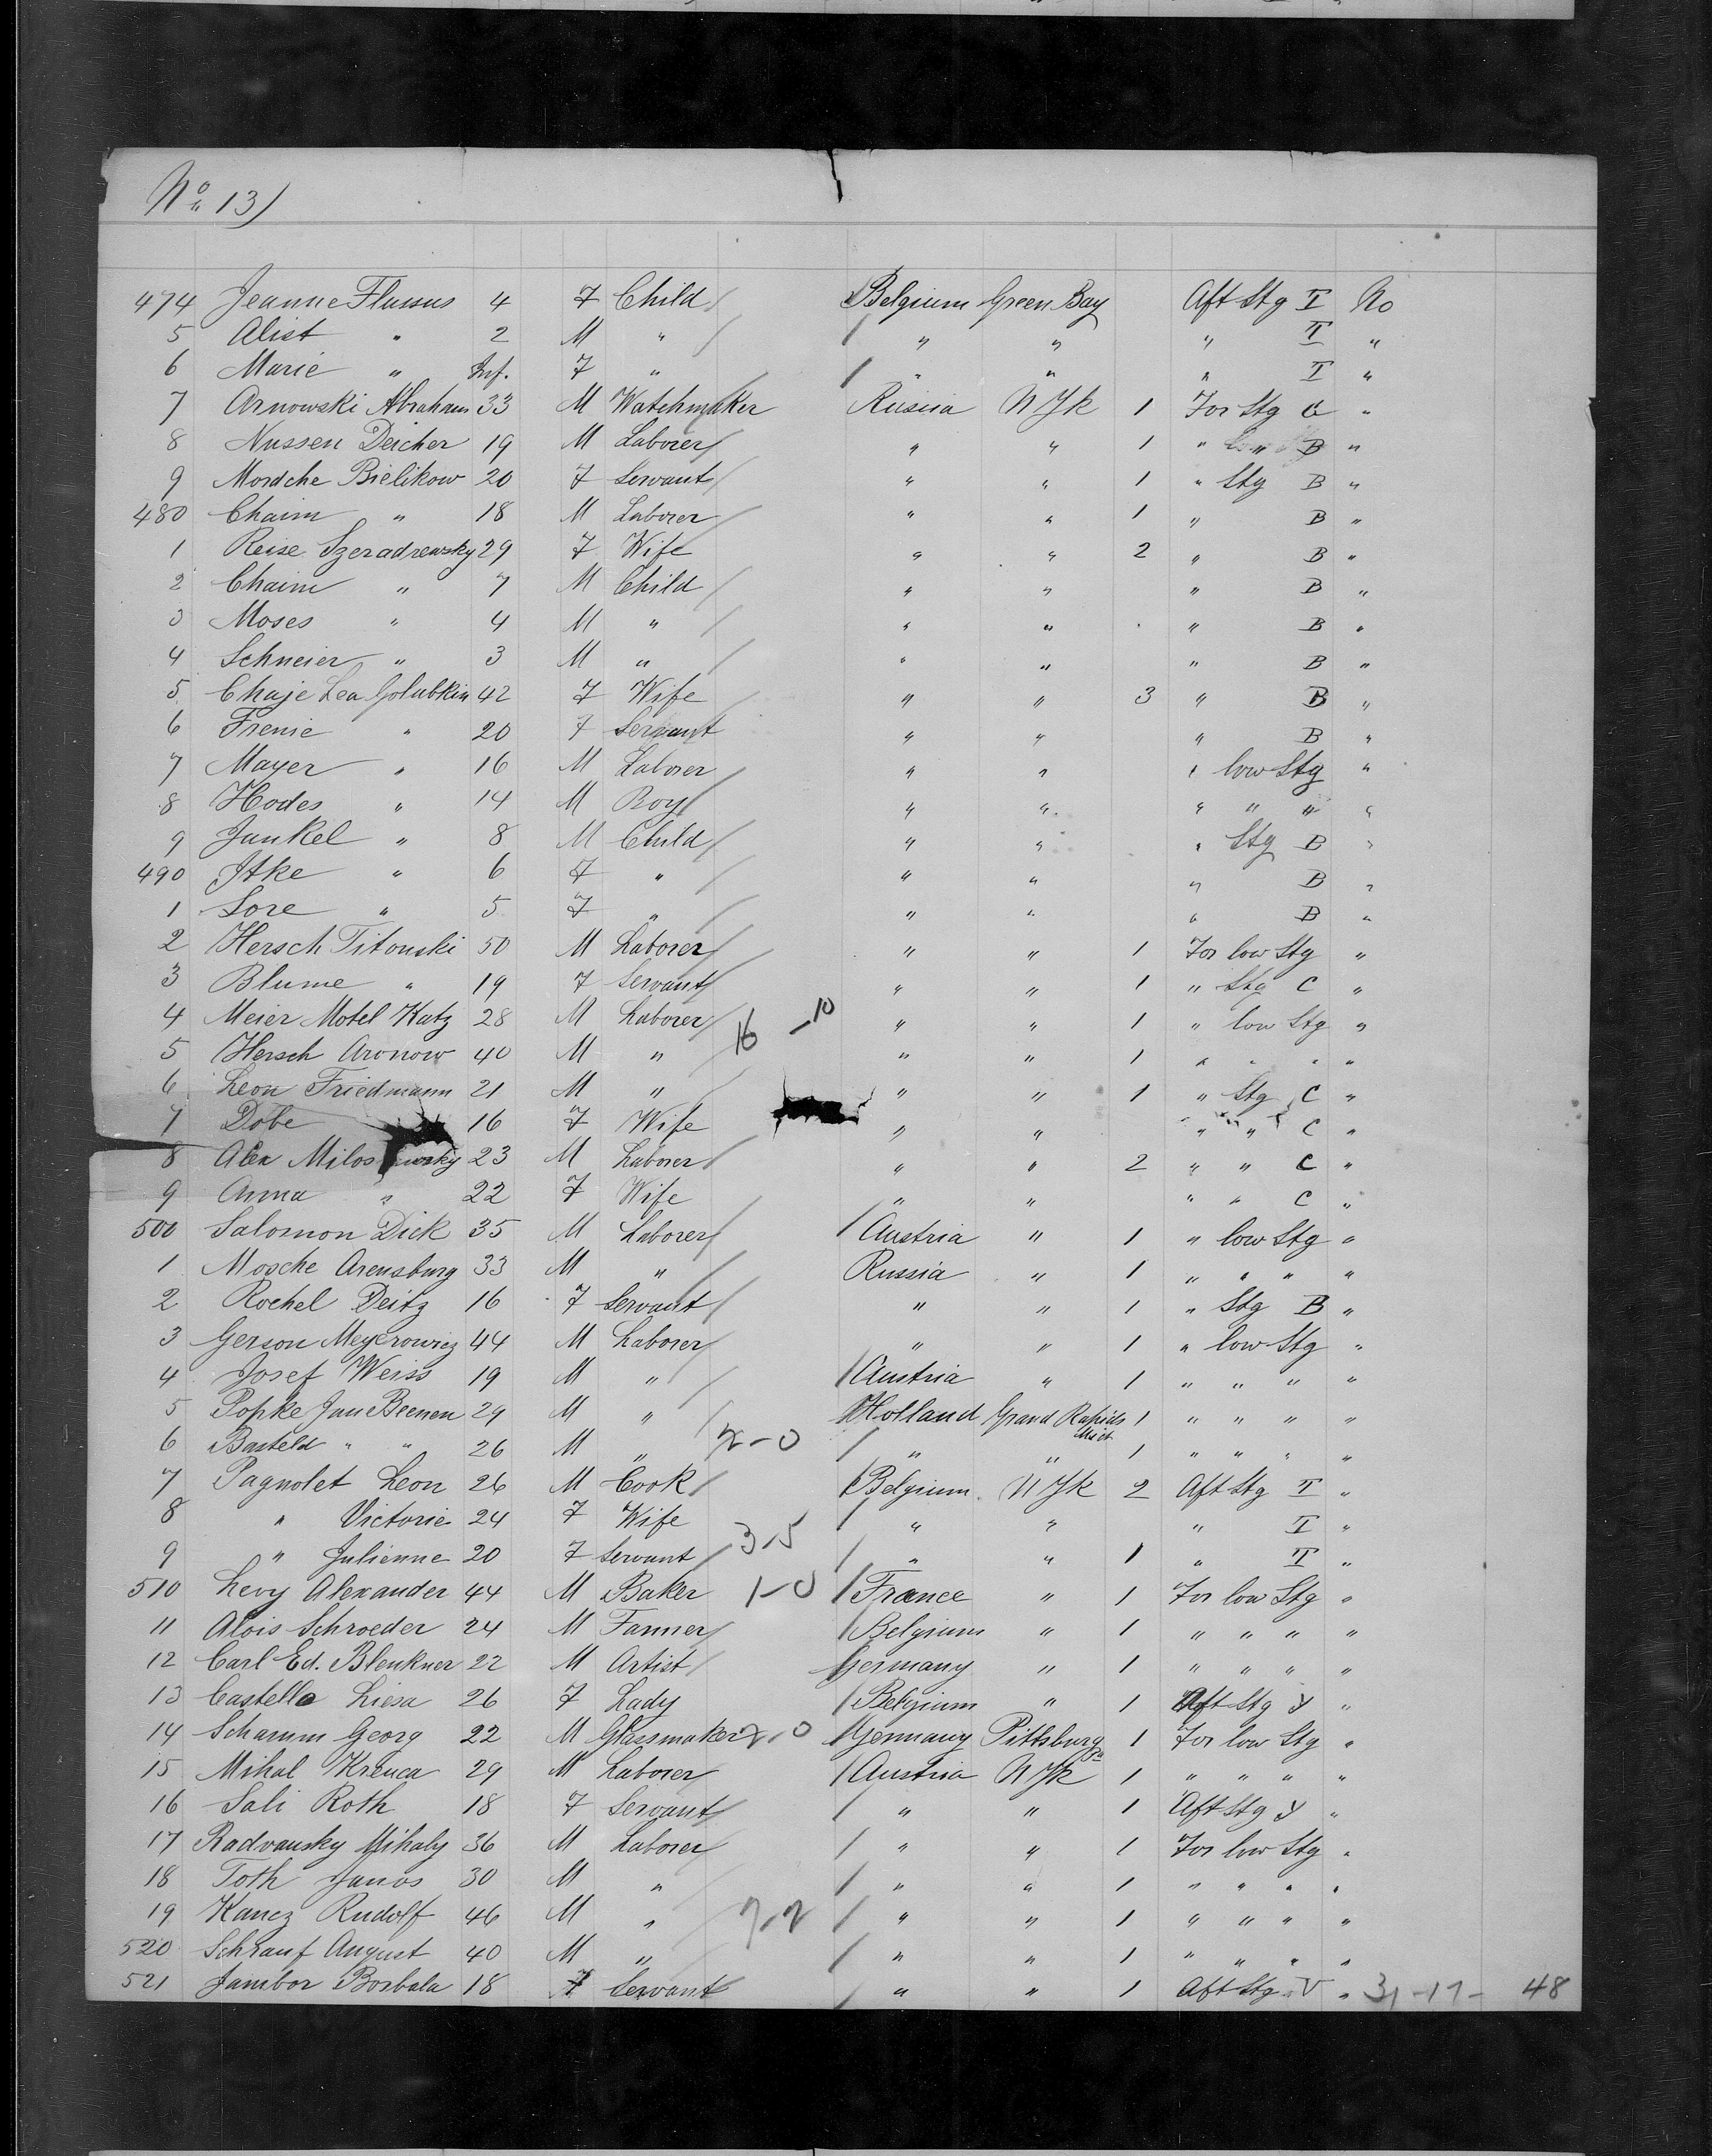 No 13)
474 Jeanne Flussus 4 F Child Belgium Green Bay Aft Stg T No
5 Alist " 2 M " " " " T "
6 Marie " Inf. F " " " " T "
7 Arnowski Abraham 33 M Watchmaker Russia N Yk 1 For Stg A "
8 Nussen Deicher 19 M Laborer " " 1 " " B "
9 Mordche Bielikow 20 F Servant " " 1 " Stg B "
480 Chaim " 18 M Laborer " " 1 " B "
1 Reise Szeradrewsky 29 F Wife " " 2 " B "
2 Chaim " 7 M Child " " " B "
3 Moses " 4 M " " " " B "
4 Schneier " 3 M " " " " B "
5 Chaje Lea Golubkin 42 F Wife " " 3 " B "
6 Frenie " 20 F Servant " " " B "
7 Mayer " 16 M Laborer " " " low Stg "
8 Hodes " 14 M Boy " " " " " "
9 Jankel " 8 M Child " " " Stg B "
490 Itke " 6 F " " " " B "
1 Sore " 5 F " " " " B "
2 Hersch Titonski 50 M Laborer " " 1 For low Stg "
3 Blume " 19 F Servant " " 1 " Stg C "
4 Meier Motel Katz 28 M Laborer 16 - 10 " " 1 " low Stg "
5 Hersch Aronow 40 M " " " 1 " " " "
6 Leon Friedmann 21 M " " " 1 " Stg C "
7 Dobe 16 F Wife " " " " C "
8 Alex 23 M Laborer " " 2 " " C "
9 Anna " 22 F Wife " " " " C "
500 Salomon Dick 35 M Laborer Austria " 1 " low Stg "
1 Mosche Arensburg 33 M " Russia " 1 " " " "
2 Rochel Deitz 16 F Servant " " 1 " Stg B "
3 Gerson Meyerowicz 44 M Laborer " " 1 " low Stg "
4 Josef Weiss 19 M " Austria " 1 " " " "
5 Popke Jan Beenen 29 M " Holland Grand Rapids Mich 1 " " " "
6 Basteld " " 26 M " 2-0 " " 1 " " " "
7 Pagnolet Leon 26 M Cook Belgium N Yk 2 Aft Stg T "
8 " Victorie 24 F Wife " " " T "
9 " Julienne 20 F Servant 3-5 " " 1 " T "
510 Levy Alexander 44 M Baker 1-0 France " 1 For low Stg "
11 Alois Schroeder 24 M Farmer Belgium " 1 " " " "
12 Carl Ed. Blenkner 22 M Artist Germany " 1 " " " "
13 Castella Liesa 26 F Lady Belgium " 1 Aft Stg Y "
14 Schamm Georg 22 M Glassmaker 2-0 Germany Pittsburg Pa 1 For low Stg "
15 Mihal Krenca 29 M Laborer Austria N Yk 1 " " " "
16 Sali Roth 18 F Servant " " 1 Aft Stg Y "
17 Radvansky Mihaly 36 M Laborer " " 1 For low Stg "
18 Toth Janos 30 M " " " 1 " " " "
19 Kancz Rudolf 46 M " 7-2 " " 1 " " " "
520 Schrauf August 40 M " " " 1 " " " "
521 Jambor Borbala 18 F Servant " " 1 Aft Stg V " 31-17- 48